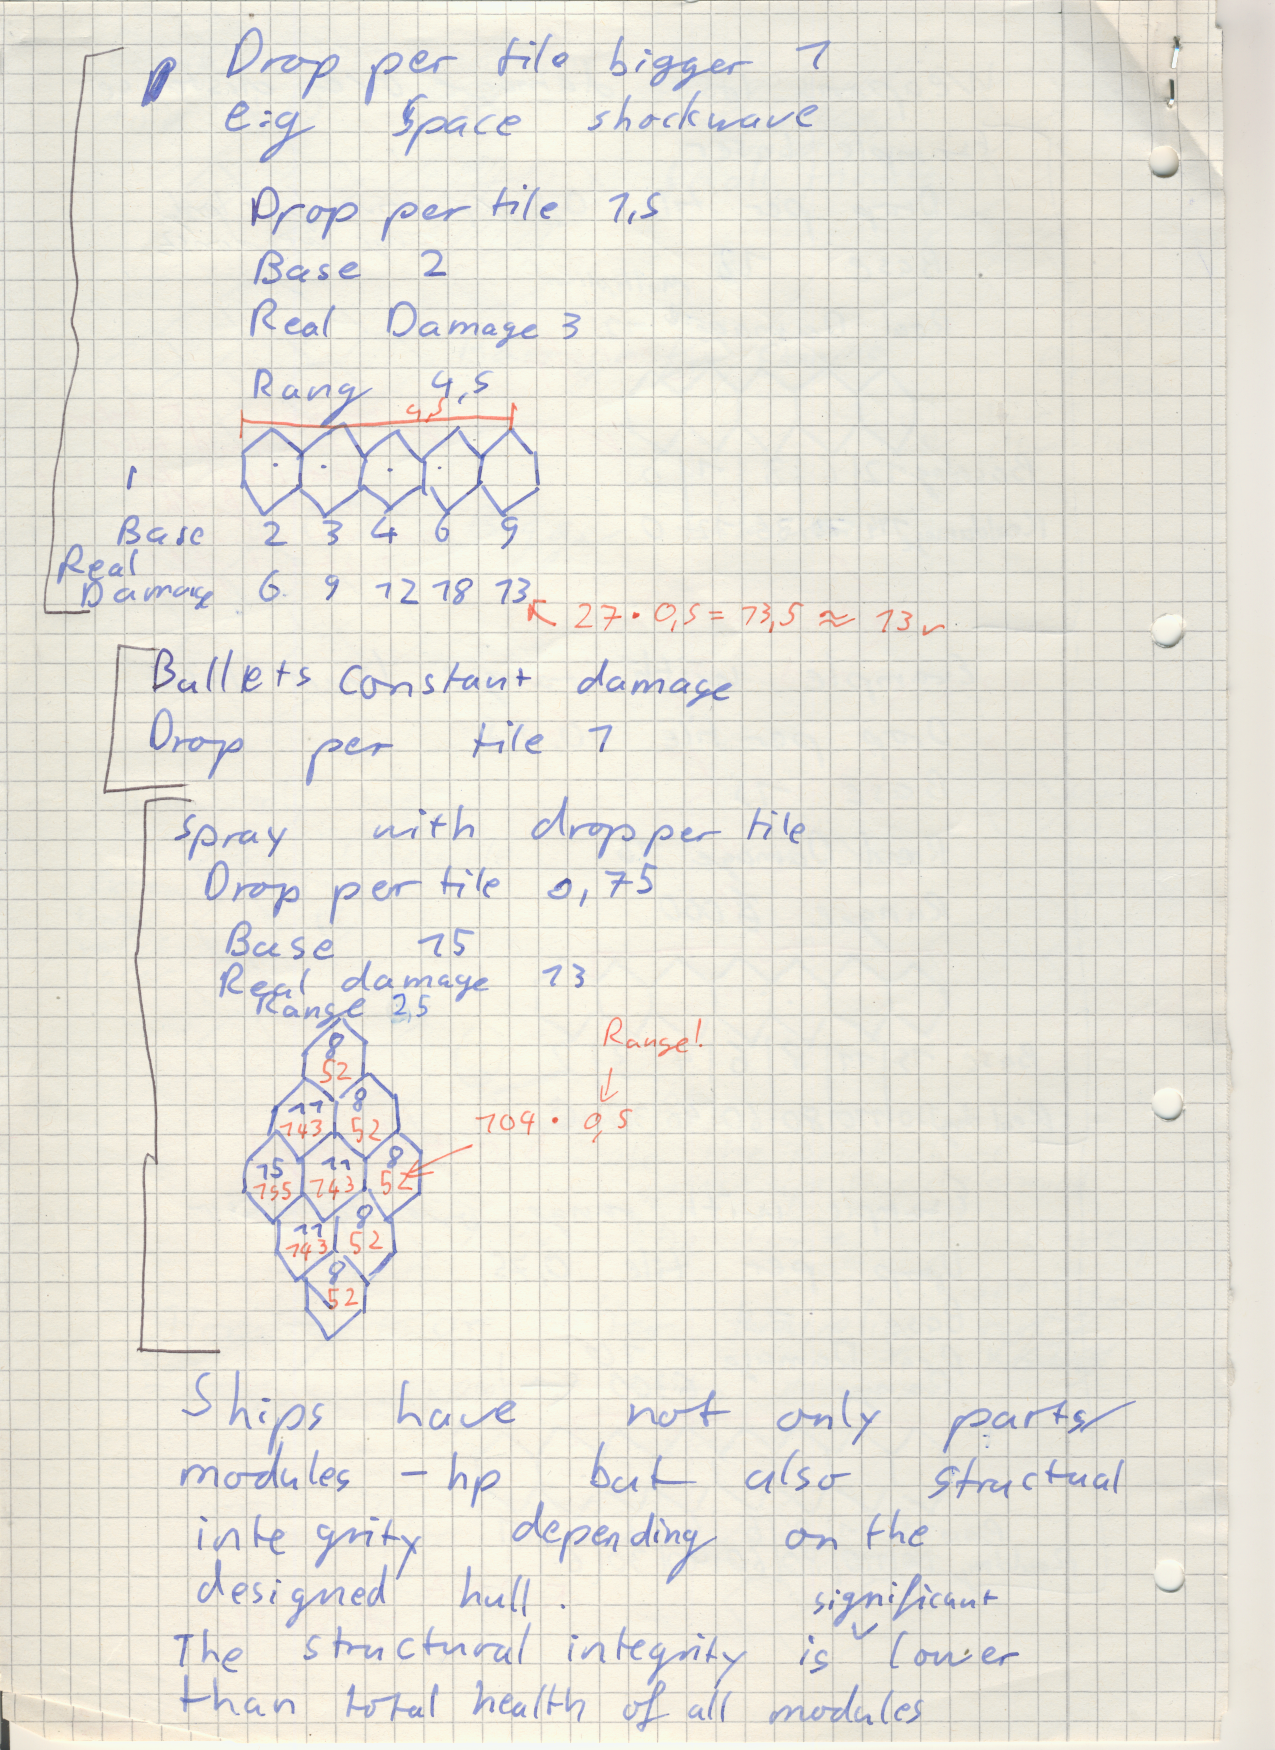 Drop per tile bigger 1
e:g Space shockwave
Drop per tile 1,5
Base 2
Real Damage 3
Rang 4,5
4,5
Base 2 3 4 6 9
Real
Damage 6 9 12 18 13
27 · 0,5 = 13,5 ≈ 13
Bullets constant damage
Drop per tile 1
Spray with drop per tile
Drop per tile 0,75
Base 15
Real damage 13
Range 2,5
Range!
8
52
11 8
143 52
104 · 0,5
15 11 8
155 143 52
11 8
143 52
8
52
Ships have not only parts/
modules - hp but also structual
integrity depending on the
designed hull.
significant
The structural integrity is lower
than total health of all modules